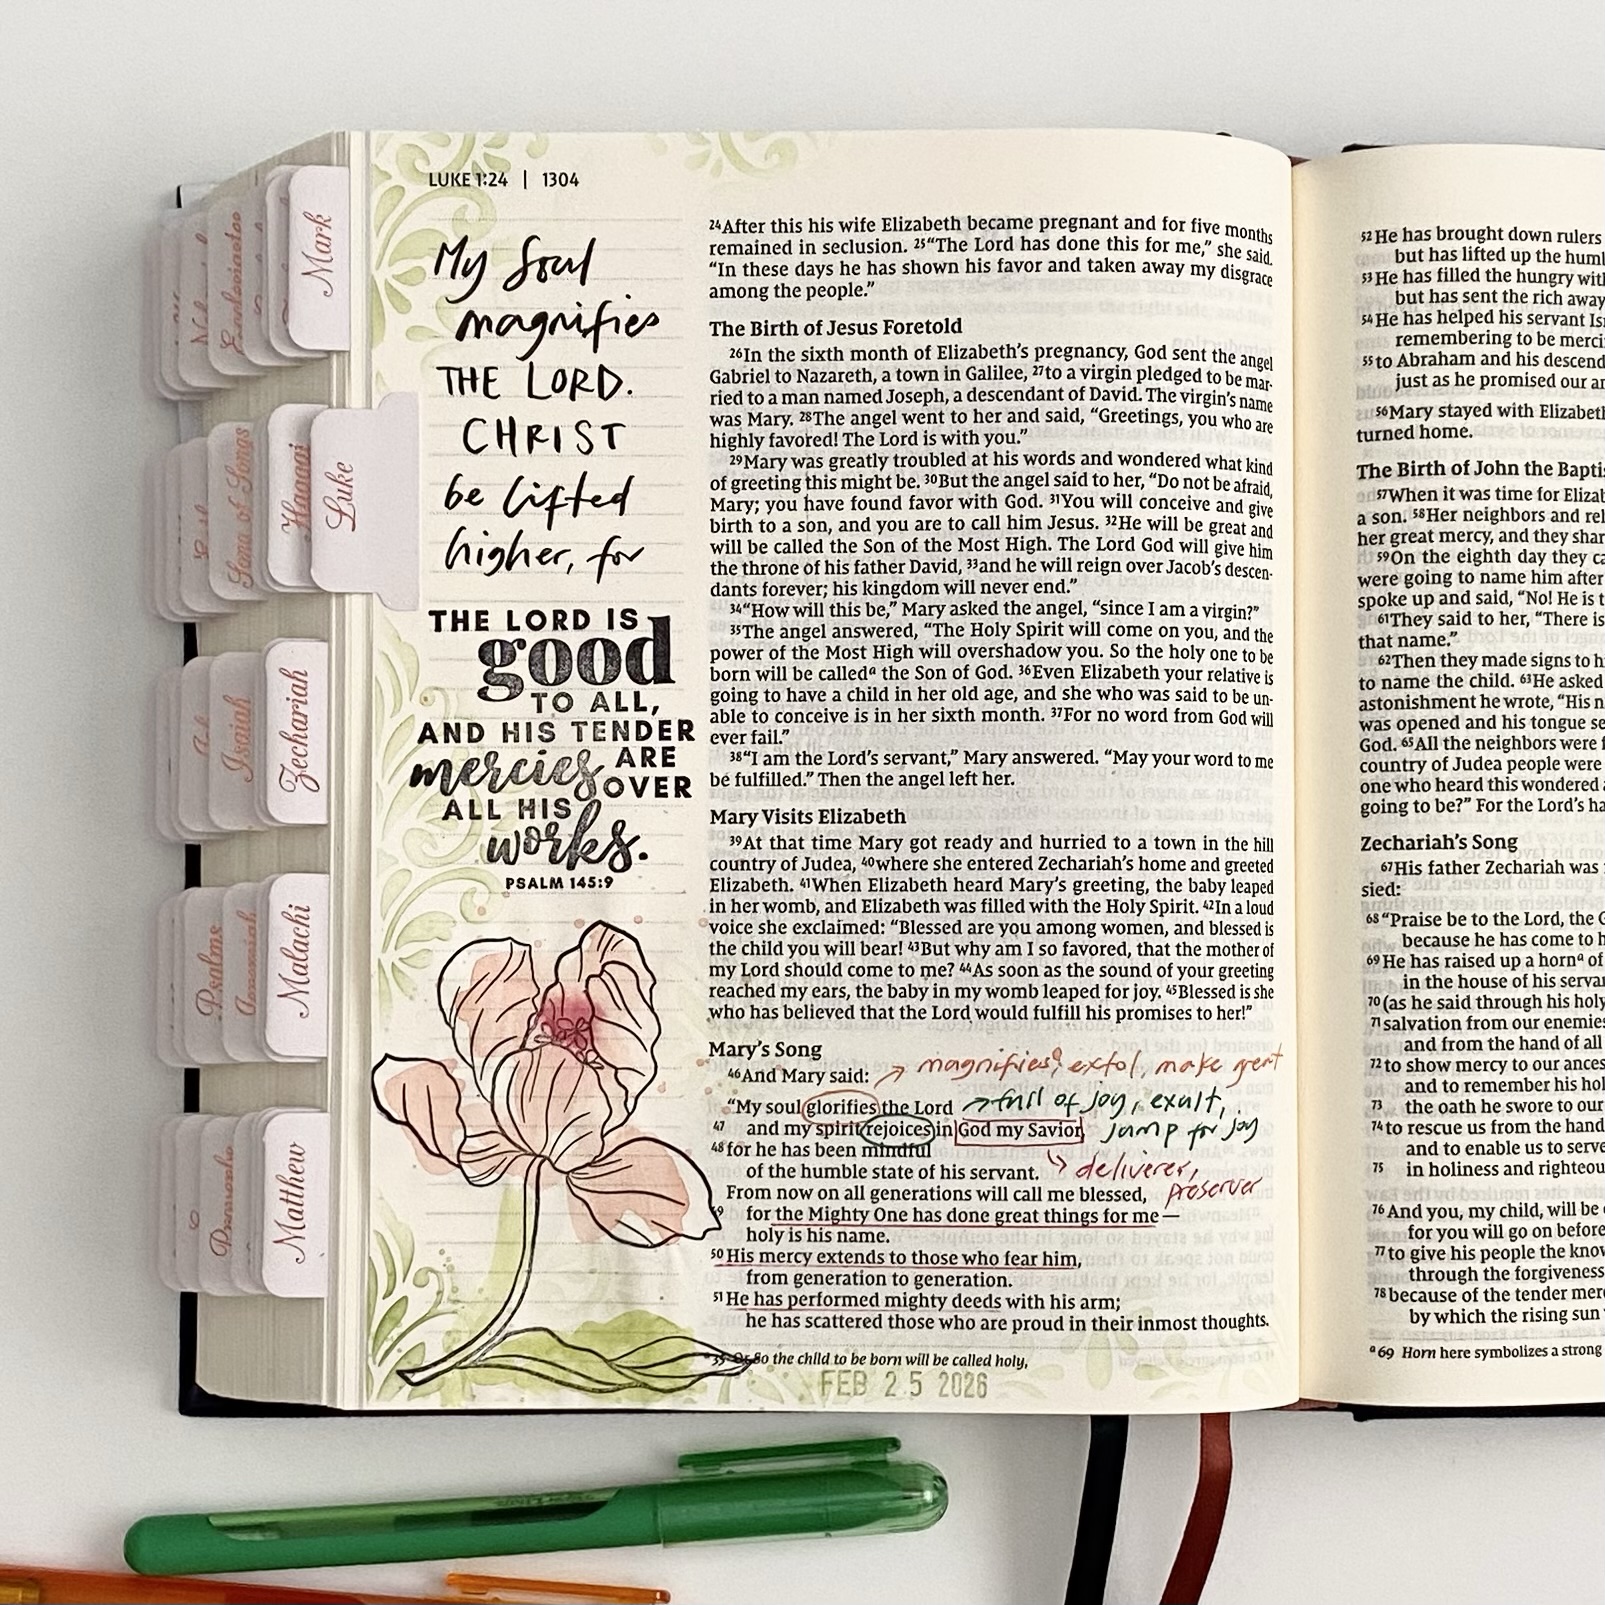 LUKE 1:24 | 1304
My Soul
magnifies
THE LORD.
CHRIST
be lifted
higher, for
THE LORD IS
good
TO ALL,
AND HIS TENDER
mercies ARE
OVER
ALL HIS
works.
PSALM 145:9
Mark
Ecclesiastes
Luke
Haggai
Song of Songs
Zechariah
Isaiah
Malachi
Psalms
Matthew
24After this his wife Elizabeth became pregnant and for five months
remained in seclusion. 25“The Lord has done this for me,” she said.
“In these days he has shown his favor and taken away my disgrace
among the people.”
The Birth of Jesus Foretold
26In the sixth month of Elizabeth’s pregnancy, God sent the angel
Gabriel to Nazareth, a town in Galilee, 27to a virgin pledged to be mar-
ried to a man named Joseph, a descendant of David. The virgin’s name
was Mary. 28The angel went to her and said, “Greetings, you who are
highly favored! The Lord is with you.”
29Mary was greatly troubled at his words and wondered what kind
of greeting this might be. 30But the angel said to her, “Do not be afraid,
Mary; you have found favor with God. 31You will conceive and give
birth to a son, and you are to call him Jesus. 32He will be great and
will be called the Son of the Most High. The Lord God will give him
the throne of his father David, 33and he will reign over Jacob’s descen-
dants forever; his kingdom will never end.”
34“How will this be,” Mary asked the angel, “since I am a virgin?”
35The angel answered, “The Holy Spirit will come on you, and the
power of the Most High will overshadow you. So the holy one to be
born will be calledᵃ the Son of God. 36Even Elizabeth your relative is
going to have a child in her old age, and she who was said to be un-
able to conceive is in her sixth month. 37For no word from God will
ever fail.”
38“I am the Lord’s servant,” Mary answered. “May your word to me
be fulfilled.” Then the angel left her.
Mary Visits Elizabeth
39At that time Mary got ready and hurried to a town in the hill
country of Judea, 40where she entered Zechariah’s home and greeted
Elizabeth. 41When Elizabeth heard Mary’s greeting, the baby leaped
in her womb, and Elizabeth was filled with the Holy Spirit. 42In a loud
voice she exclaimed: “Blessed are you among women, and blessed is
the child you will bear! 43But why am I so favored, that the mother of
my Lord should come to me? 44As soon as the sound of your greeting
reached my ears, the baby in my womb leaped for joy. 45Blessed is she
who has believed that the Lord would fulfill his promises to her!”
Mary’s Song
46And Mary said: → magnifies, extol, make great
“My soul glorifies the Lord → full of joy, exult,
47 and my spirit rejoices in God my Savior, jump for joy
48for he has been mindful
of the humble state of his servant. deliverer,
From now on all generations will call me blessed, preserver
49 for the Mighty One has done great things for me—
holy is his name.
50 His mercy extends to those who fear him,
from generation to generation.
51 He has performed mighty deeds with his arm;
he has scattered those who are proud in their inmost thoughts.
ᵃ 35 Or So the child to be born will be called holy,
FEB 25 2026
52He has brought down rulers
but has lifted up the
53He has filled the hungry
but has sent the rich away
54He has helped his servant
remembering to be
55to Abraham and his
just as he promised our
56Mary stayed with
turned home.
The Birth of John the
57When it was time for
a son. 58Her neighbors and
her great mercy, and they
59On the eighth day they
were going to name him after
spoke up and said, “No! He is
61They said to her, “There is
that name.”
62Then they made signs to
to name the child. 63He asked
astonishment he wrote, “His
was opened and his tongue
God. 65All the neighbors were
country of Judea people were
one who heard this wondered
going to be?” For the Lord’s
Zechariah’s Song
67His father Zechariah was
sied:
68“Praise be to the Lord, the
because he has come to
69He has raised up a hornᵃ of
in the house of his
70(as he said through his holy
71salvation from our
and from the hand of all
72to show mercy to our
and to remember his
73 the oath he swore to our
74to rescue us from the
and to enable us to serve
75 in holiness and
76And you, my child, will be
for you will go on before
77to give his people the
through the forgiveness
78because of the tender
by which the rising sun
ᵃ 69 Horn here symbolizes a strong